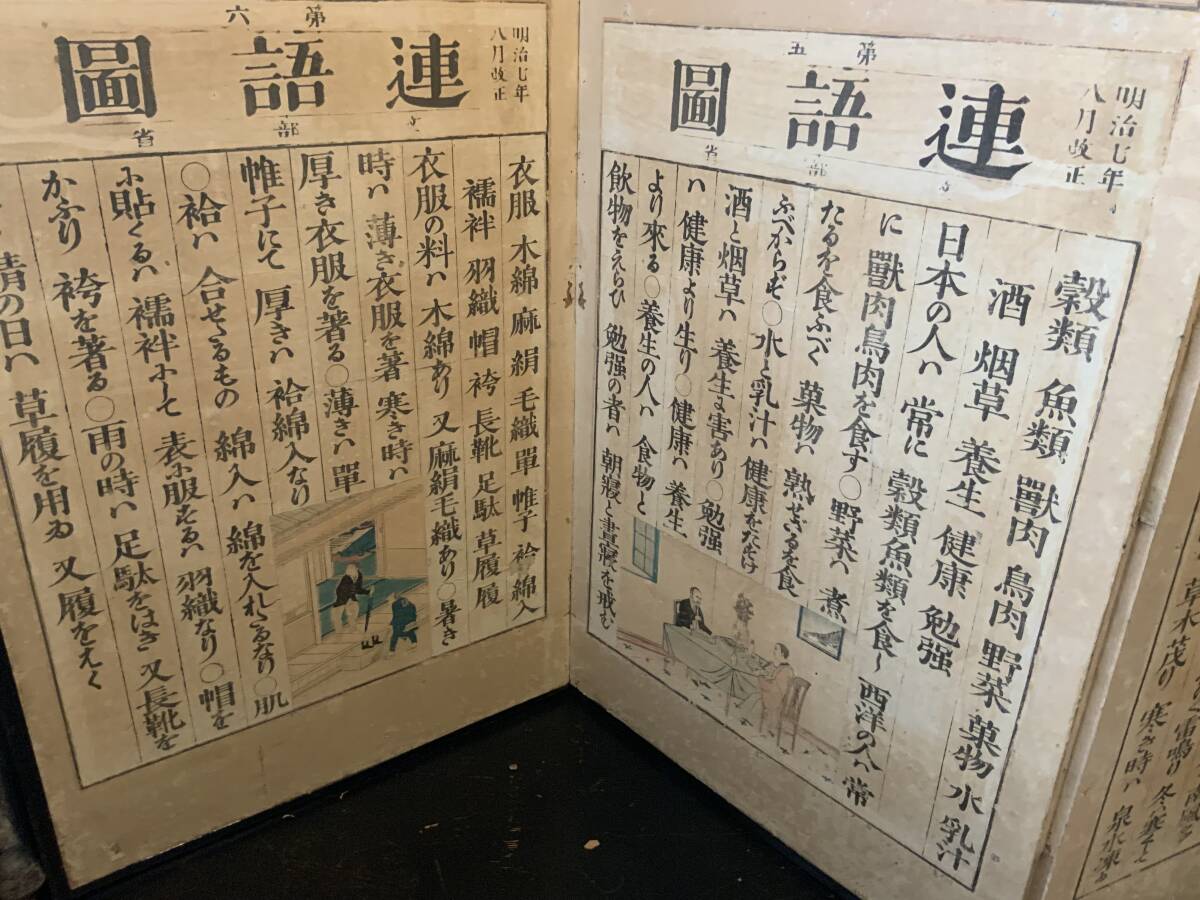 明治七年
八月改正
第五
連語圖
文部省
穀類 魚類 獸肉 鳥肉 野菜 菓物 水 乳汁
酒 烟草 養生 健康 勉强
日本の人ハ 常に 穀類魚類を食し 西洋の人ハ 常
に 獸肉鳥肉を食す○野菜ハ 煮
たるを食ふべく 菓物ハ 熟せざるを食
ふべからず○水と乳汁ハ 健康をたすけ
酒と烟草ハ 養生に害あり○勉强
ハ 健康より生り○健康ハ 養生
より來る○養生の人ハ 食物と
飲物をえらひ 勉强の者ハ 朝寢と晝寢を戒む
明治七年
八月改正
第六
連語圖
文部省
衣服 木綿 麻 絹 毛織 單 帷子 袷 綿入
襦袢 羽織 帽 袴 長靴 足駄 草履 履
衣服の料ハ 木綿あり 又 麻絹毛織あり○暑き
時ハ 薄き衣服を著 寒き時ハ
厚き衣服を著る○薄きハ 單
帷子にて 厚きハ 袷綿入なり
○袷ハ 合せたるもの 綿入ハ 綿を入れたるなり○肌
に貼くるハ 襦袢にして 表に服するハ 羽織なり○帽を
かふり 袴を著る○雨の時ハ 足駄をはき 又 長靴を
晴の日ハ 草履を用ゐ 又 履をえく
草木茂り 寒き時ハ 泉水凍る
雷鳴り 冬ハ